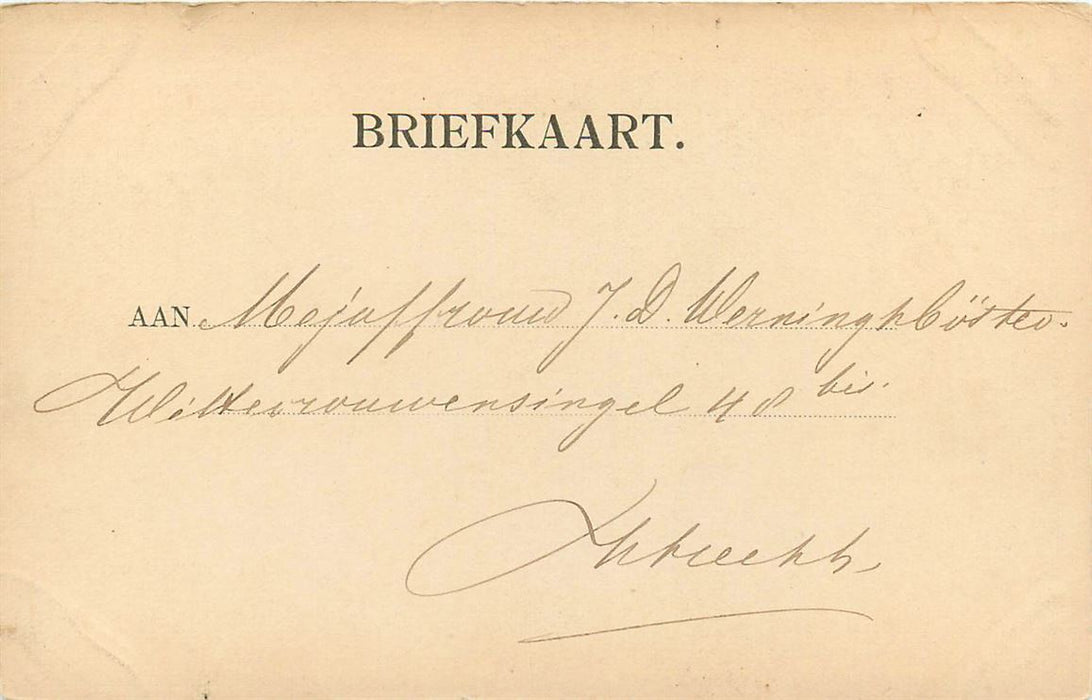 BRIEFKAART.
AAN Mejuffrouw J. D. Werningh Cöster.
Wittevrouwensingel 48 bis.
Utrecht.